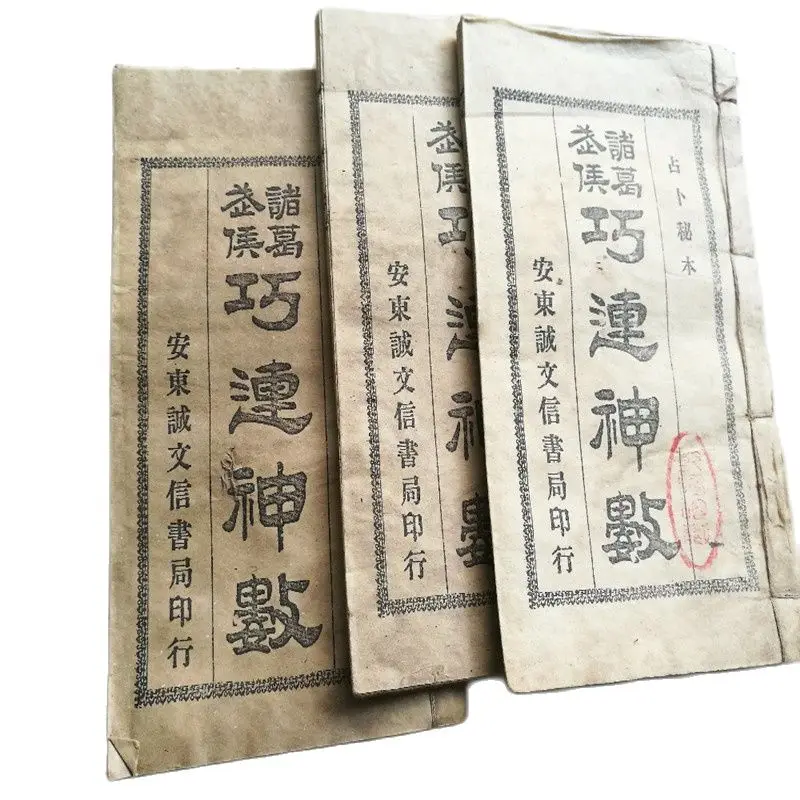 占卜秘本
諸葛
武侯
巧連神數
安東誠文信書局印行
武侯
安東誠文信書局印行
諸葛
武侯
巧連神數
安東誠文信書局印行